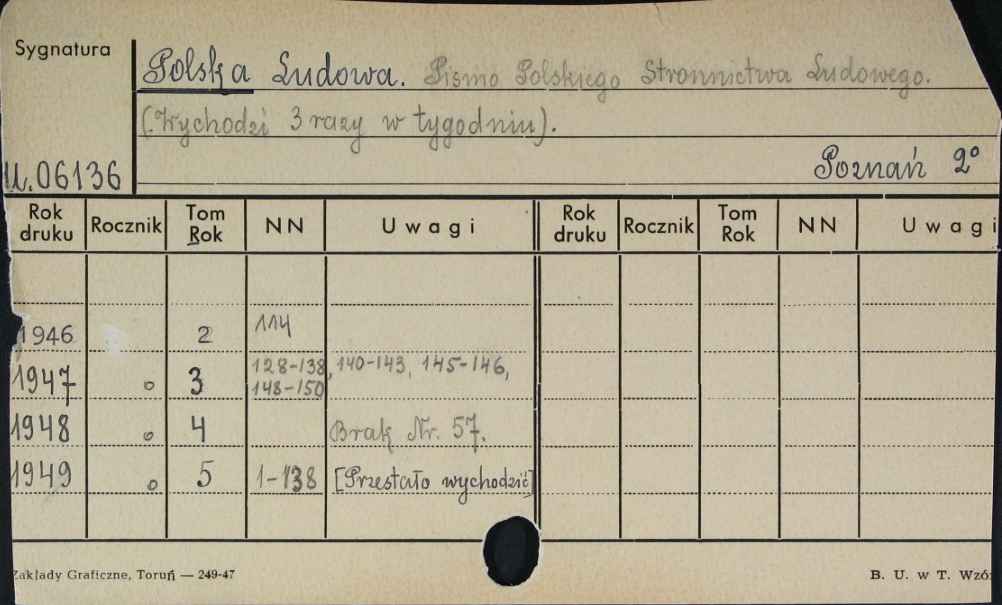 Sygnatura
Polska Ludowa. Pismo Polskiego Stronnictwa Ludowego.
(Wychodzi 3 razy w tygodniu).
U.06136
Poznań 2°
Rok druku Rocznik Tom Rok NN Uwagi Rok druku Rocznik Tom Rok NN Uwagi
1946 2 114
1947 o 3 128-138, 140-143, 145-146,
148-150
1948 o 4 Brak Nr. 57.
1949 o 5 1-138 [Przestało wychodzić]
Zakłady Graficzne, Toruń — 249-47
B. U. w T. Wzór